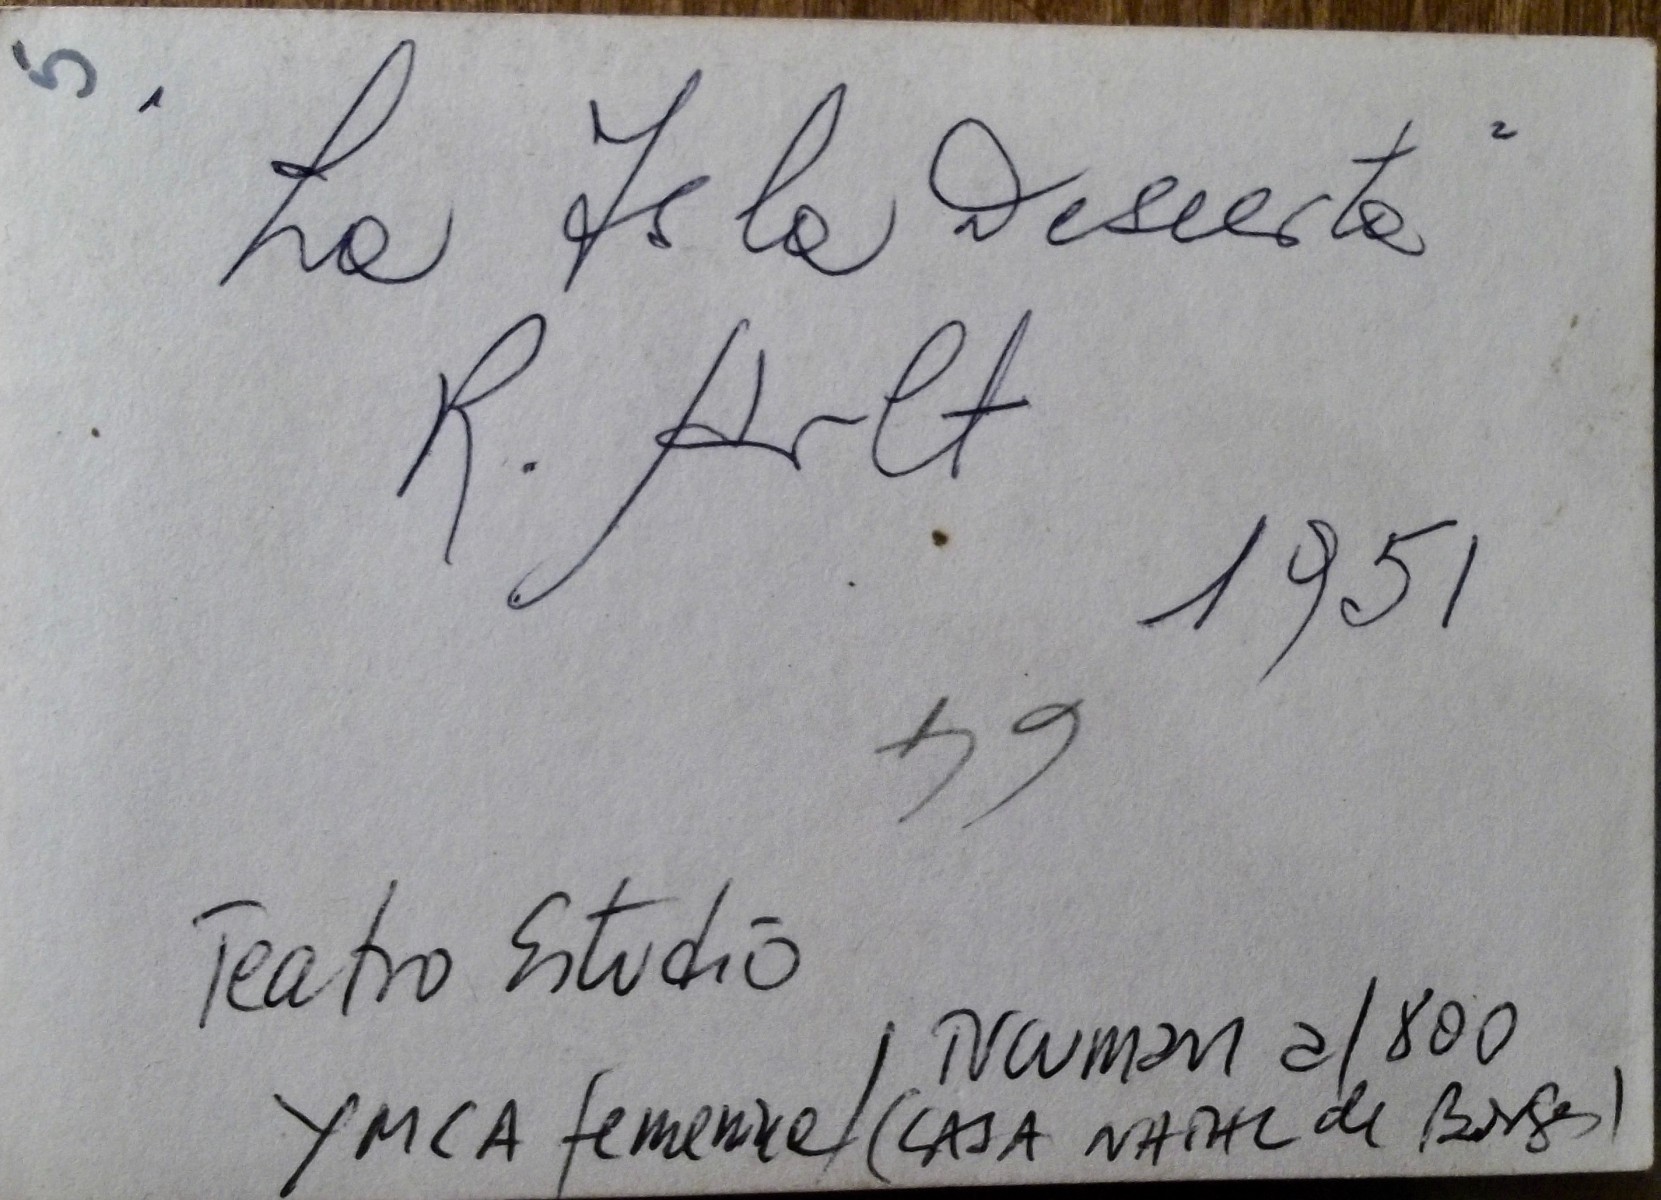 5
"La Isla Desierta"
R. Arlt
1951
Teatro Estudio
Tucuman al 800
YMCA femenina / (CASA NATAL de Borges)